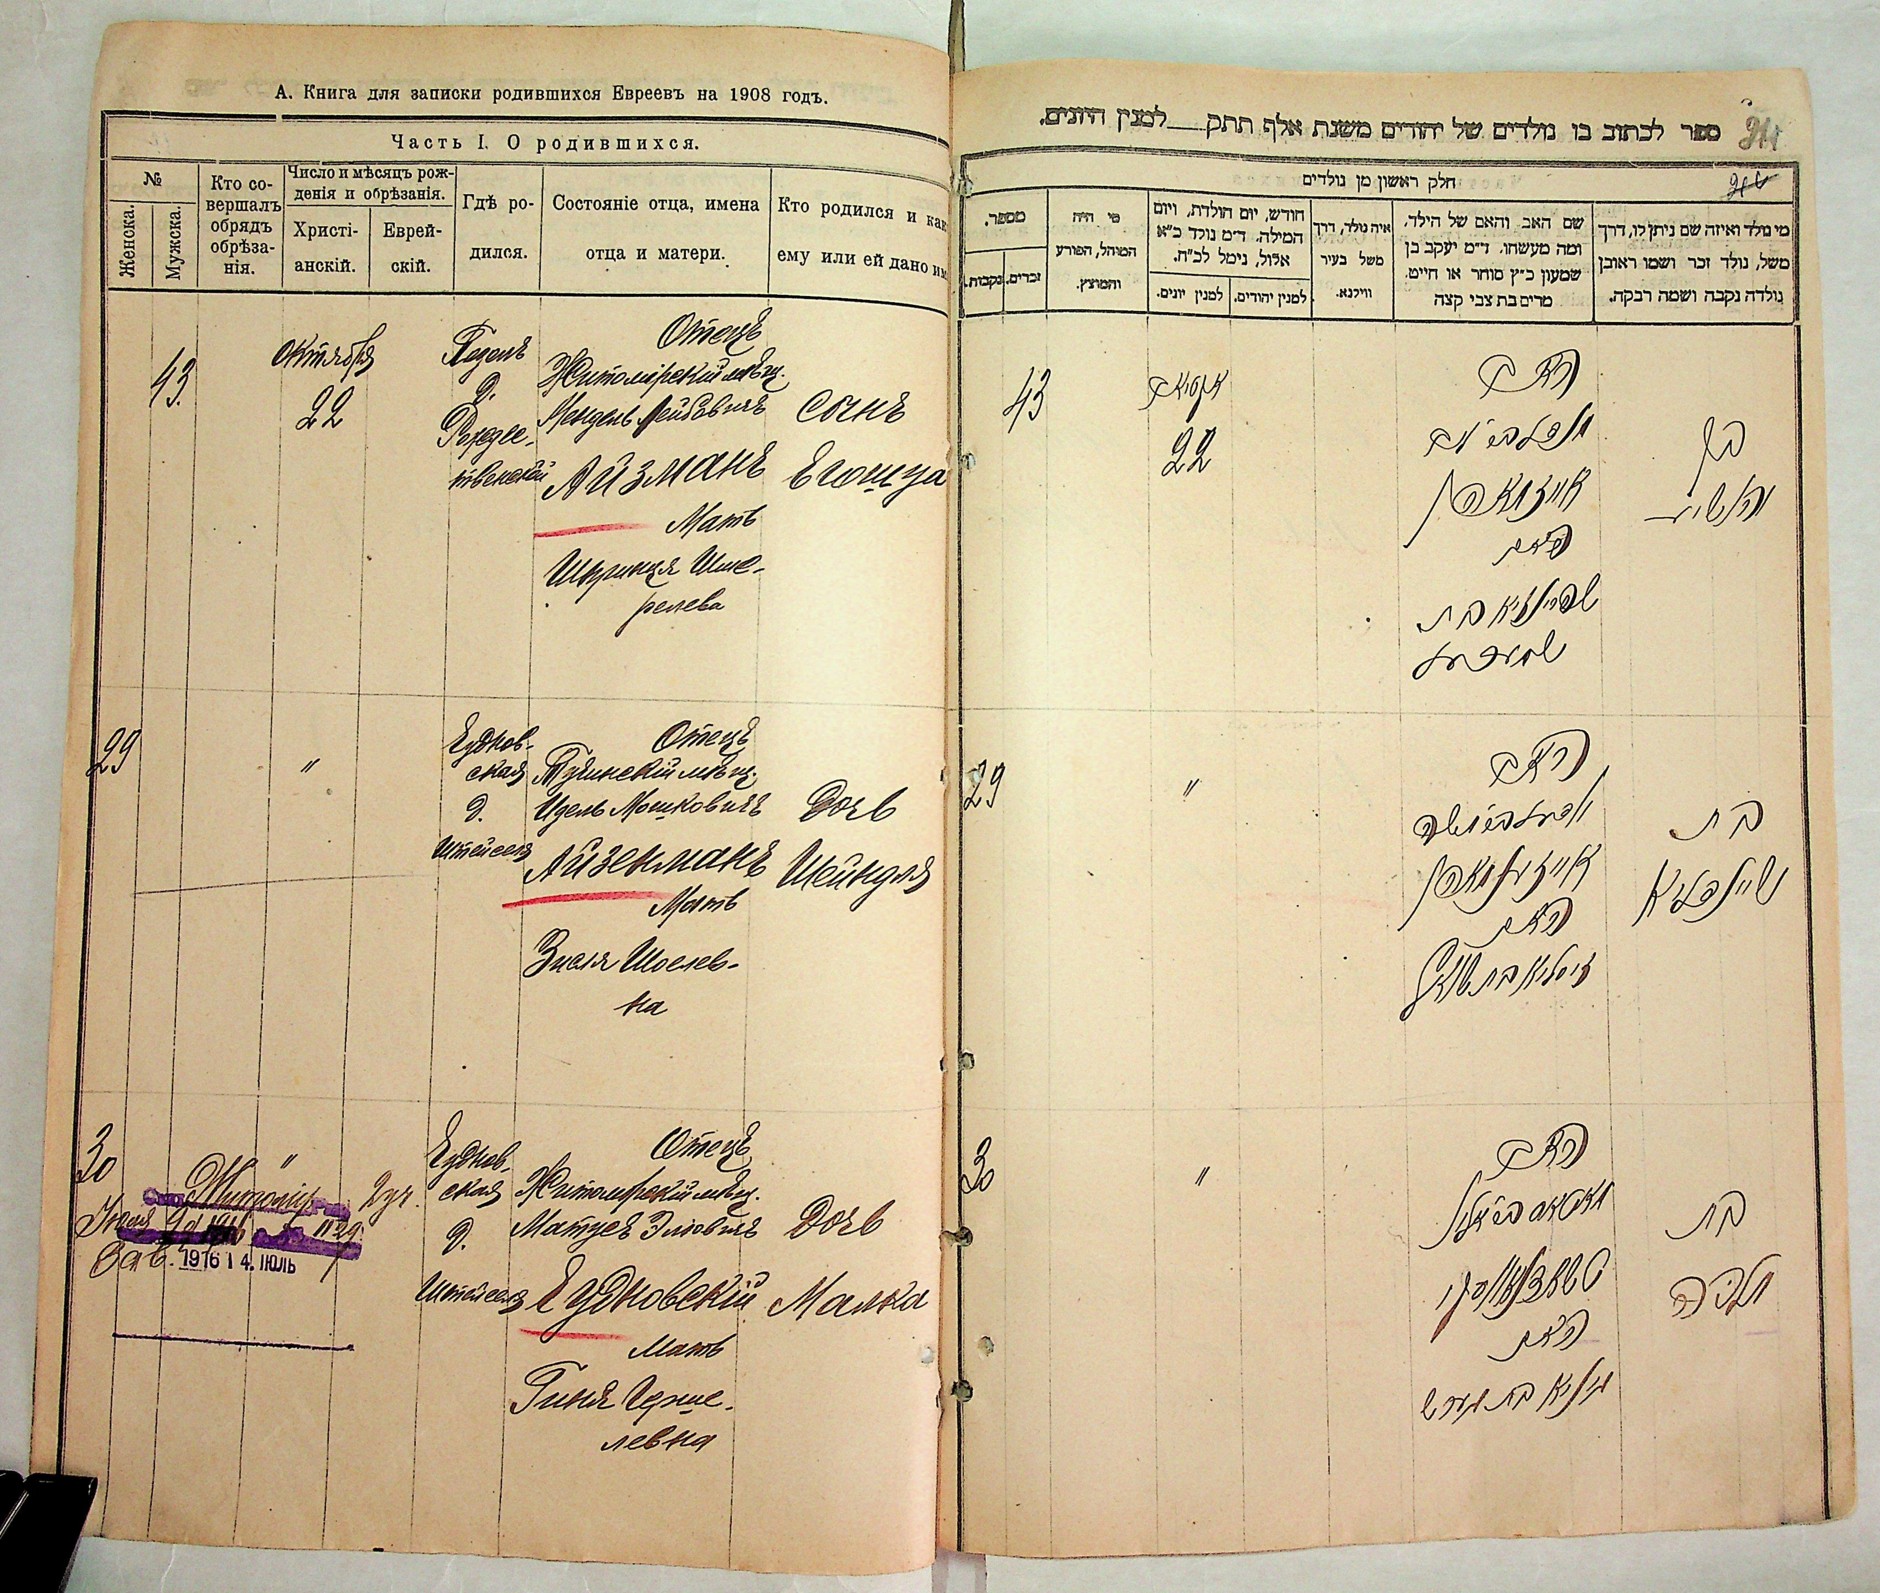 А. Книга для записки родившихся Евреевъ на 1908 годъ.
Часть I. О родившихся.
№
Женска.
Мужска.
Кто со-
вершалъ
обрядъ
обрѣза-
нія.
Число и мѣсяцъ рож-
денія и обрѣзанія.
Христі-
анскій.
Еврей-
скій.
Гдѣ ро-
дился.
Состояніе отца, имена
отца и матери.
Кто родился и как
ему или ей дано им
43.
Октября
22
Д.
Рождес-
твенской
Отецъ
Житомірскій мѣщ.
Мендель Лейбовичъ
Айзманъ
Мать
Шпринця Шме-
релева
Сынъ
29
"
Чуднов-
ская
д.
Штейсель
Отецъ
мѣщ.
Идель Мошковичъ
Айзенманъ
Мать
Зисля Шоелев-
на
Дочь
Шейндля
30
"
2 уч.
Июля
1916 14. ІЮЛЬ
Чуднов-
ская
д.
Штейсель
Отецъ
Житомірскій мѣщ.
Матусъ Эліовичъ
Чудновскій
Мать
Гиня Герше-
левна
Дочь
Малка
ספר לכתוב בו נולדים של יהודים משנת אלף תתק למנין היונים.
חלק ראשון מן נולדים
מספר.
זכרים.
נקבות.
מי היה
המוהל, הפורע
והמוצץ.
חודש, יום הולדת, ויום
המילה. ד״מ נולד כ״א
אלול, נימל לכ״ח.
למנין יונים.
למנין יהודים.
איה נולד, דרך
משל בעיר
ווילנא.
שם האב והאם של הילד,
ומה מעשהו. ד״מ יעקב בן
שמעון כ״ץ סוחר או חייט,
מרים בת צבי קצה
מי נולד ואיזה שם ניתן לו, דרך
משל, נולד זכר ושמו ראובן
נולדה נקבה ושמה רבקה.
43
22
האב
אייזמאן
האם
שפרינציא בת
שמערעל
בן
29
"
האב
אייזענמאן
האם
זיסליא בת
בת
שיינדליא
30
"
האב
האם
גיניא בת הערש
בת
מלכה